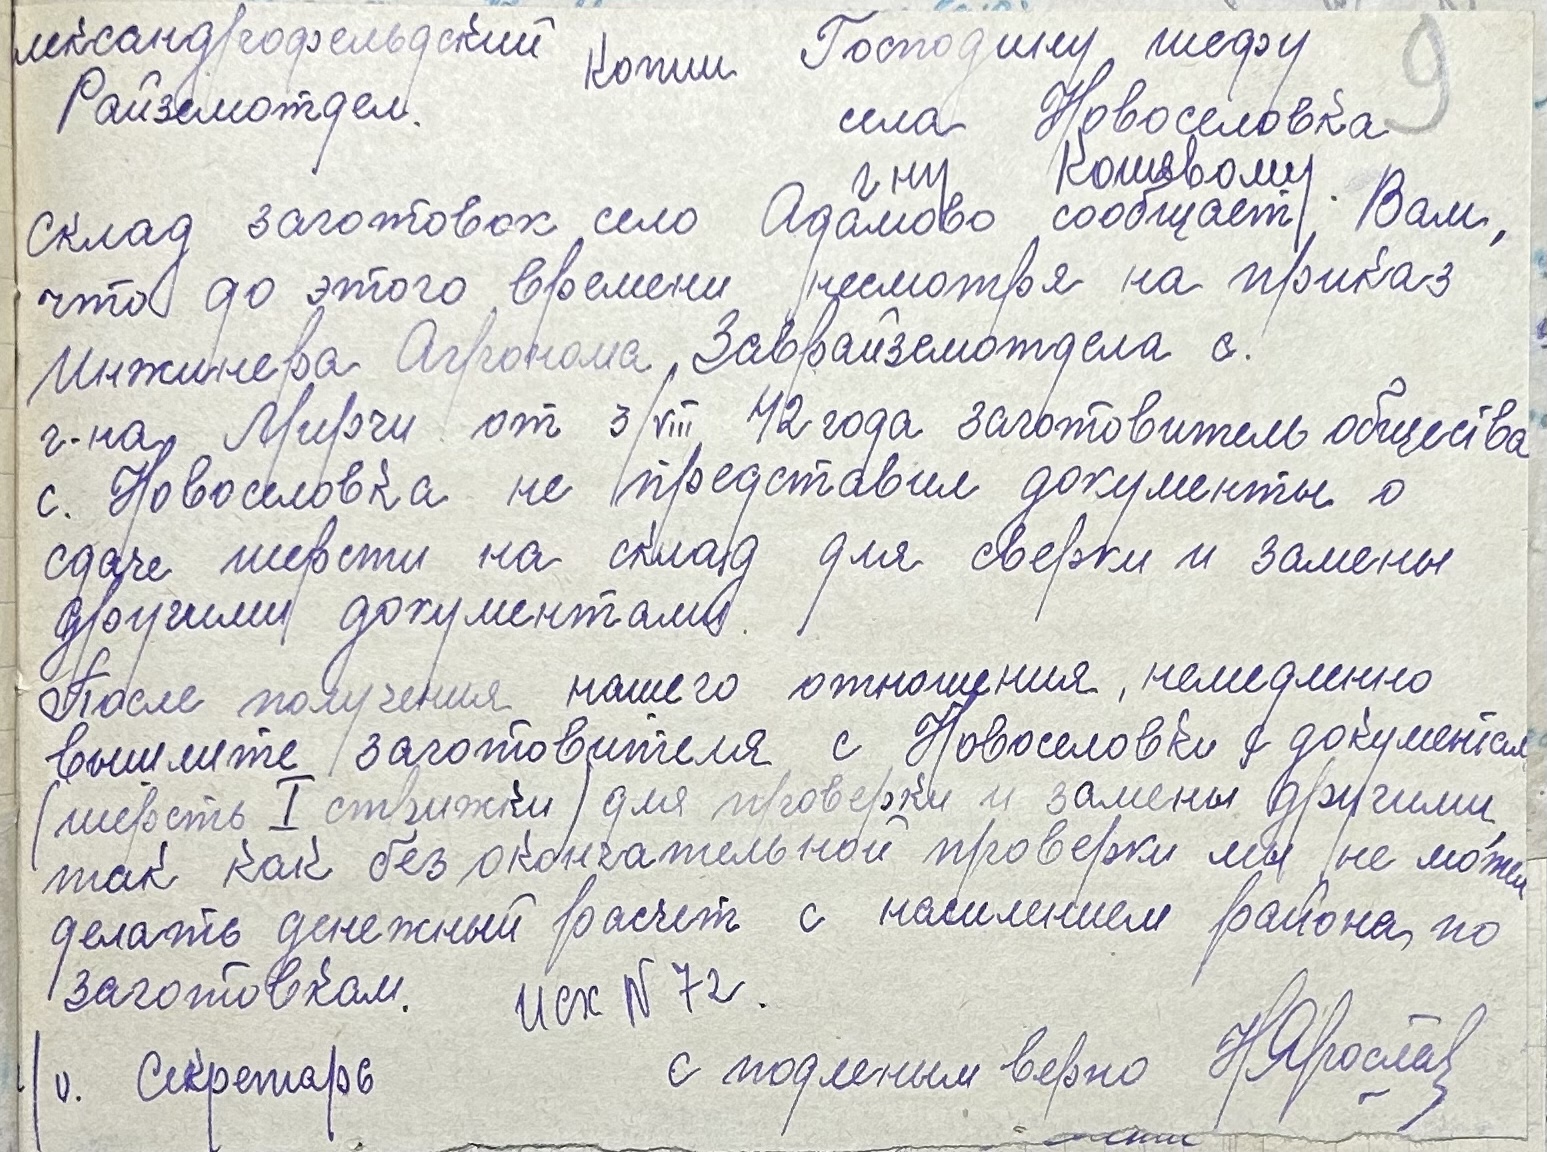 лександрофельдский Копии Господину шефу
Райземотдел. села Новоселовка
г-ну Кошевому.
9
Склад заготовок село Адамово сообщает Вам,
что до этого времени несмотря на приказ
Инжинера Агронома, Заврайземотдела с.
г-на Мирчи от 3/VIII 42 года заготовитель общества
с. Новоселовка не представил документы о
сдаче шерсти на склад для сверки и замены
другими документами.
После получения нашего отношения, немедленно
вышлите заготовителя с Новоселовки с документами
(шерсть I стрижки) для проверки и замены другими,
так как без окончательной проверки мы не можем
делать денежный расчет с населением района, по
заготовкам. Исх N 72.
Секретарь с подленым верно НЯрослав